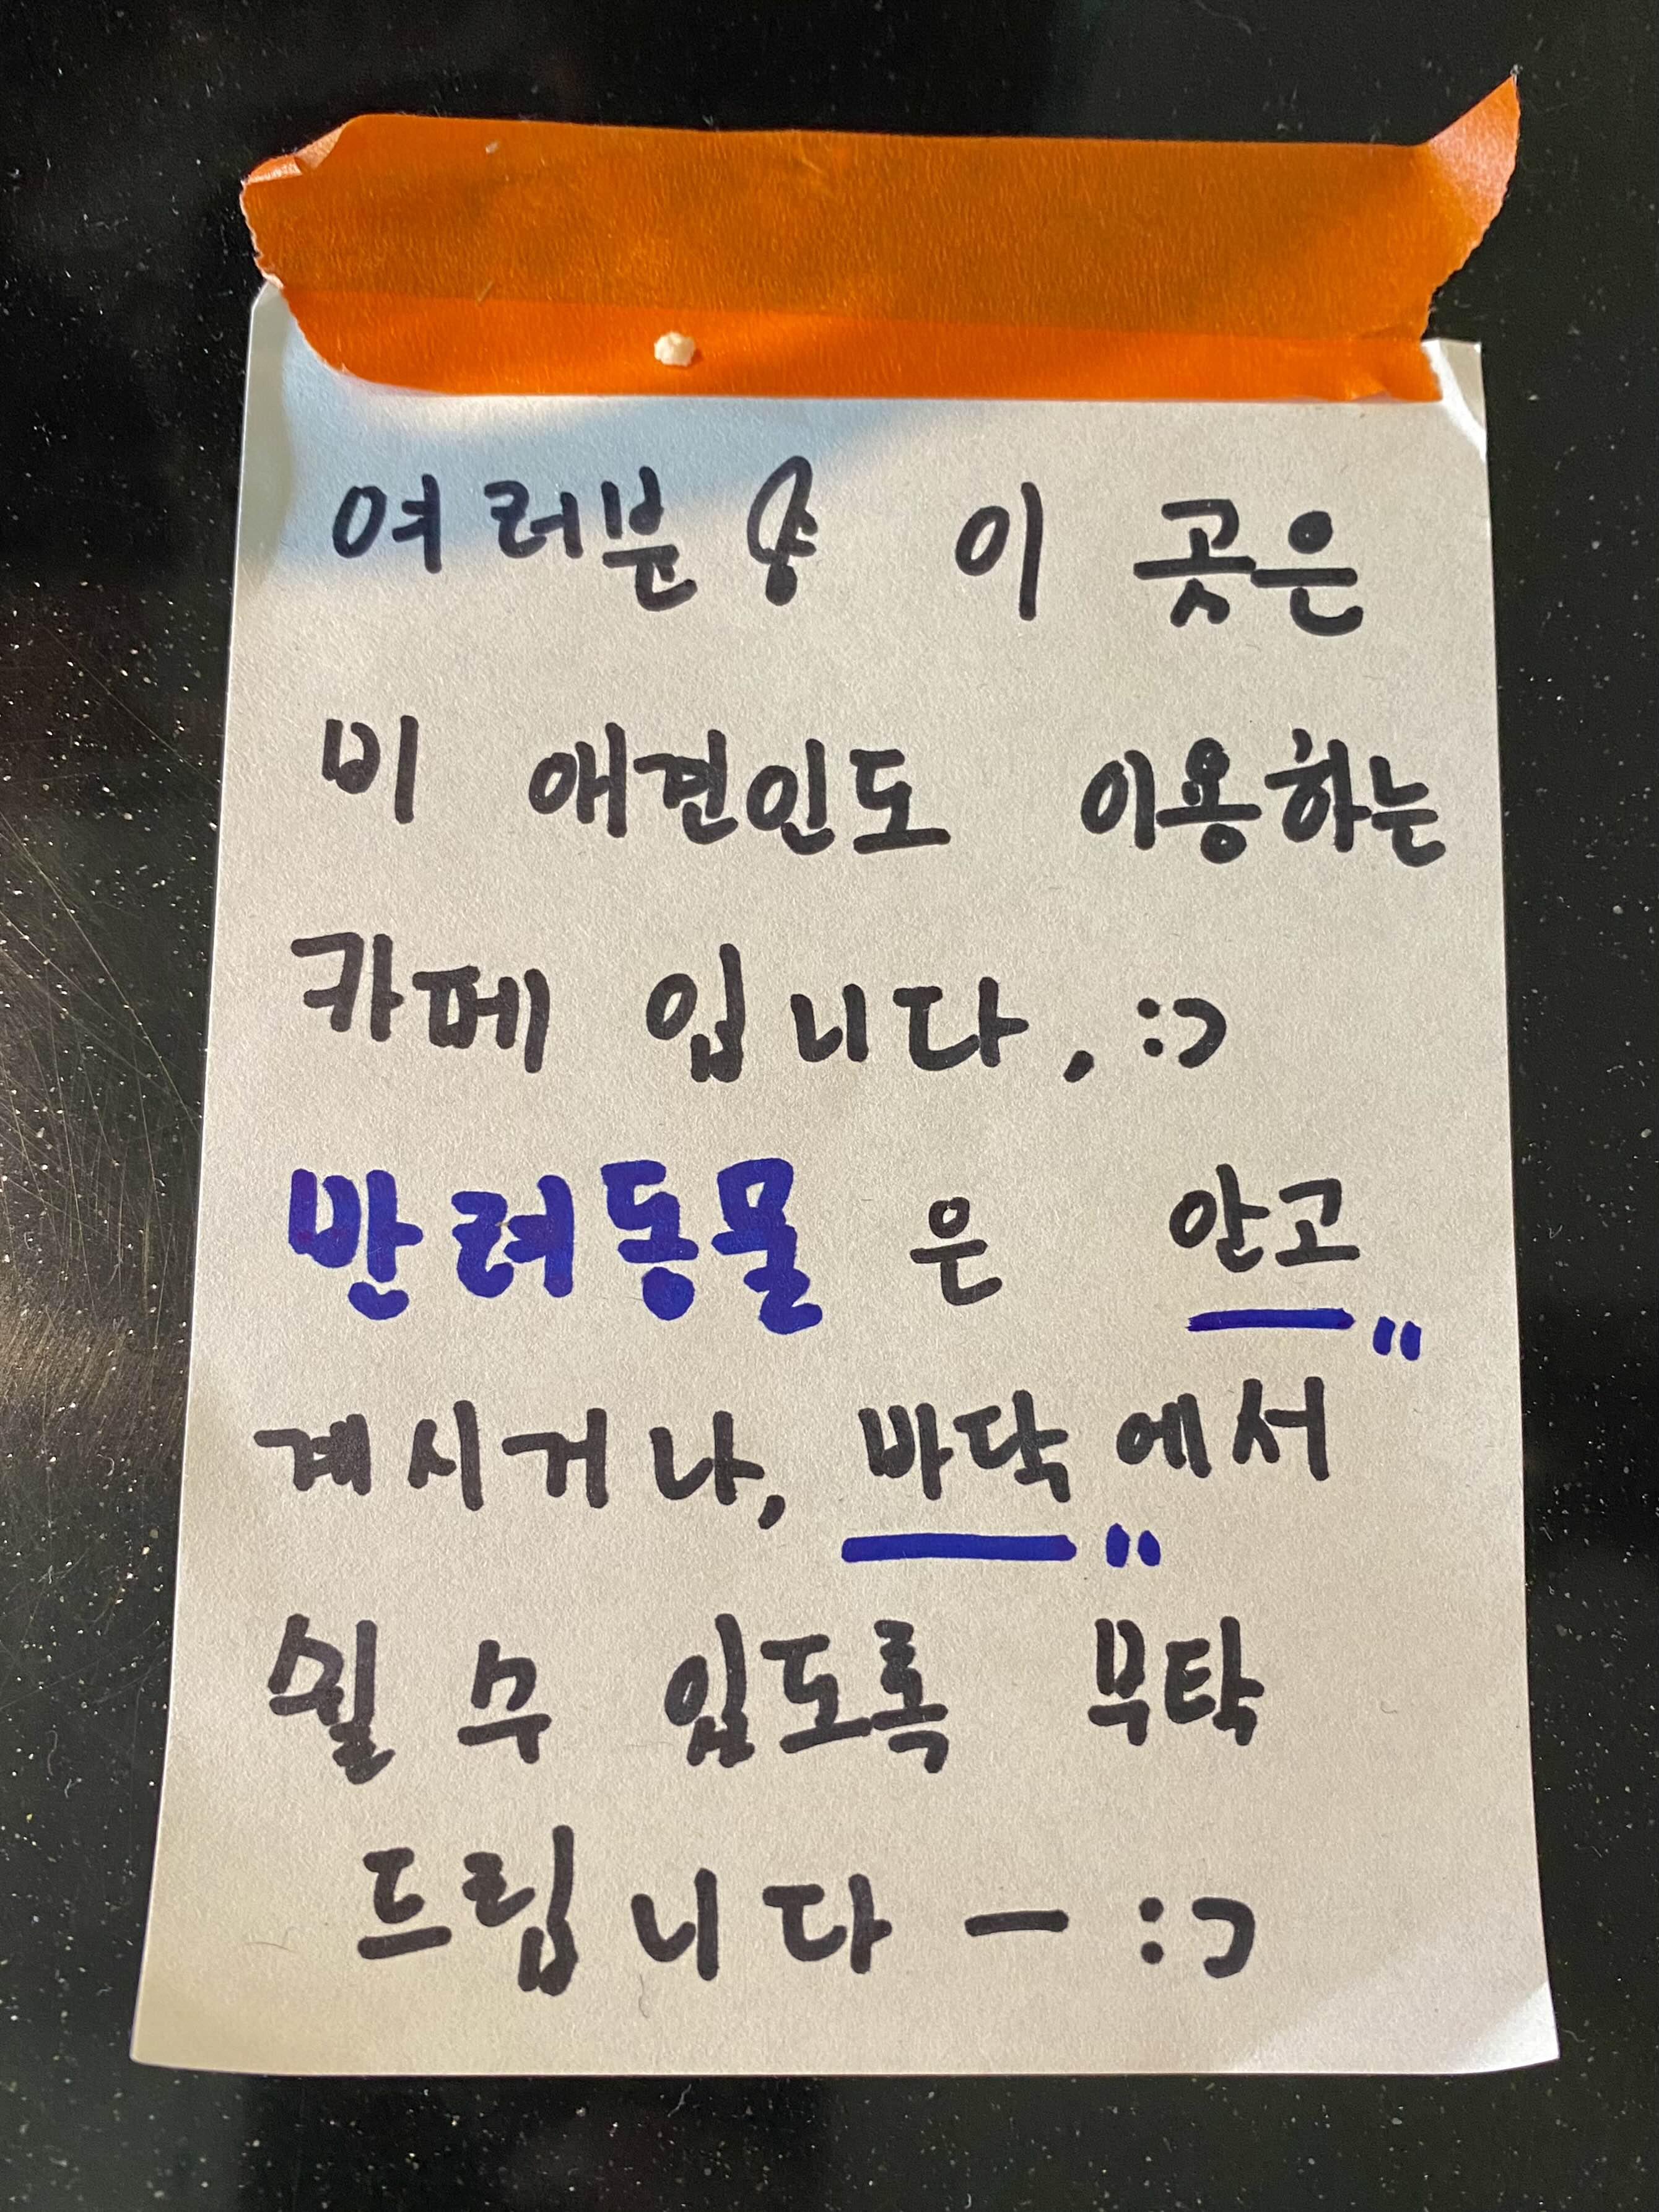 여러분 이 곳은
비 애견인도 이용하는
카페 입니다. :)
반려동물 은 안고
계시거나, 바닥에서
쉴 수 있도록 부탁
드립니다 - :)